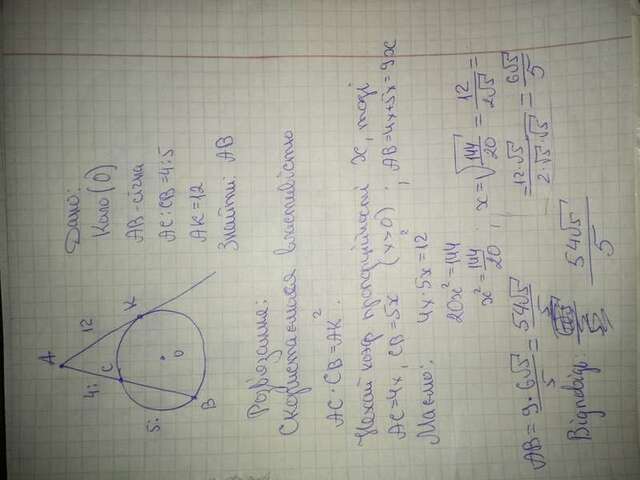 Дано:
Коло (О)
АВ - січна
АС:СВ=4:5
АК=12
Знайти: АВ
A
12
K
4:
C
5:
O
B
Розв'язання:
Скористаємося властивістю
АС·СВ=АК².
Нехай коеф. пропорційності х, тоді
АС=4х, СВ=5х (х>0); АВ=4х+5х=9х
Маємо: 4х·5х=12²
20х²=144
х²=144/20; х=√(144/20)=12/(2√5)=
=(12·√5)/(2·√5·√5)=(6√5)/5
АВ=(9·6√5)/5=(54√5)/5
Відповідь: (54√5)/5